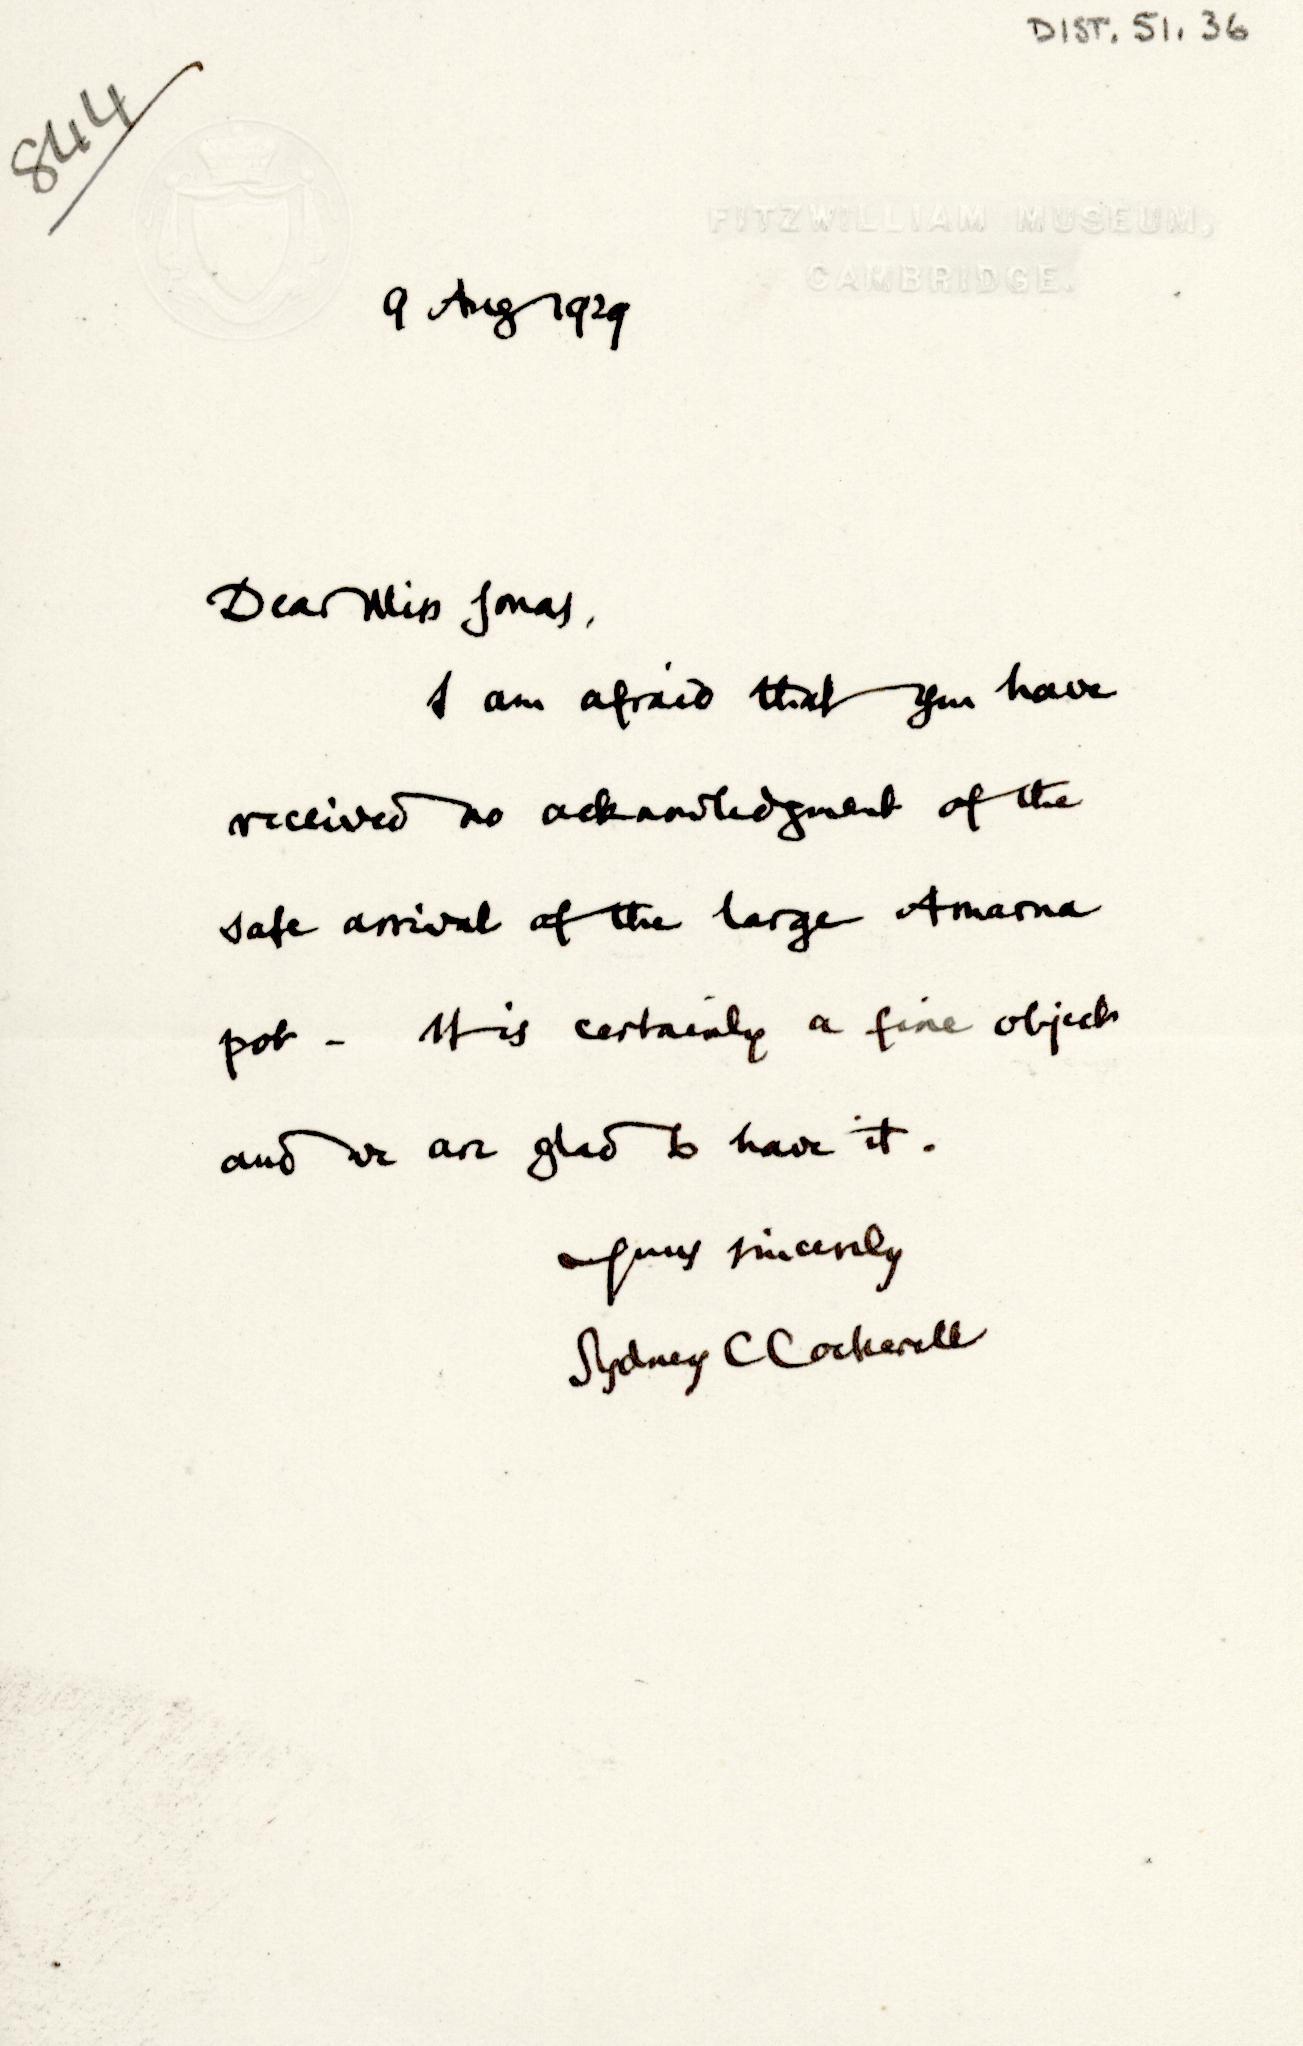 DIST. 51. 36
844
FITZWILLIAM MUSEUM,
CAMBRIDGE.
9 Aug 1929
Dear Miss Jonas,
I am afraid that you have
received no acknowledgment of the
safe arrival of the large Amarna
pot - It is certainly a fine object
and we are glad to have it.
Yours sincerely
Sydney C Cockerell